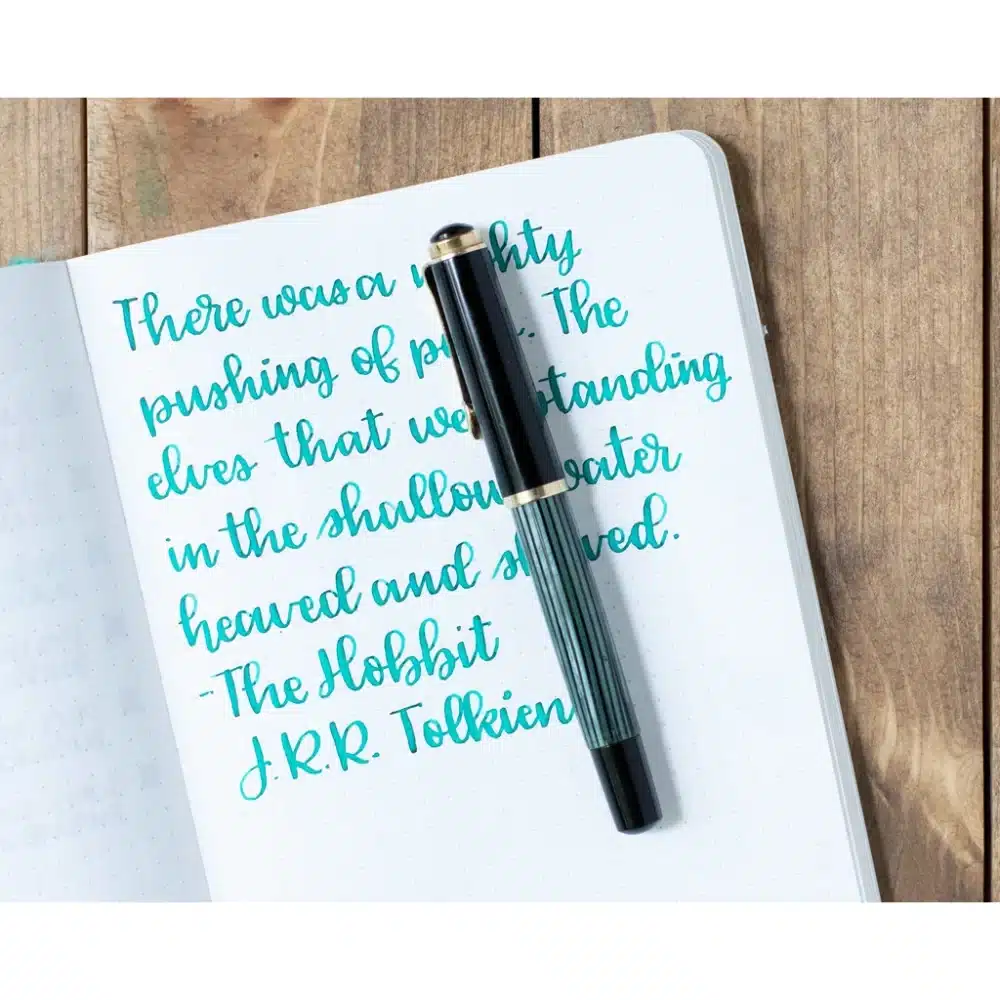 There was a
pushing of The
elves that standing
in the shallow water
heaved and
-The Hobbit
J.R.R. Tolkien